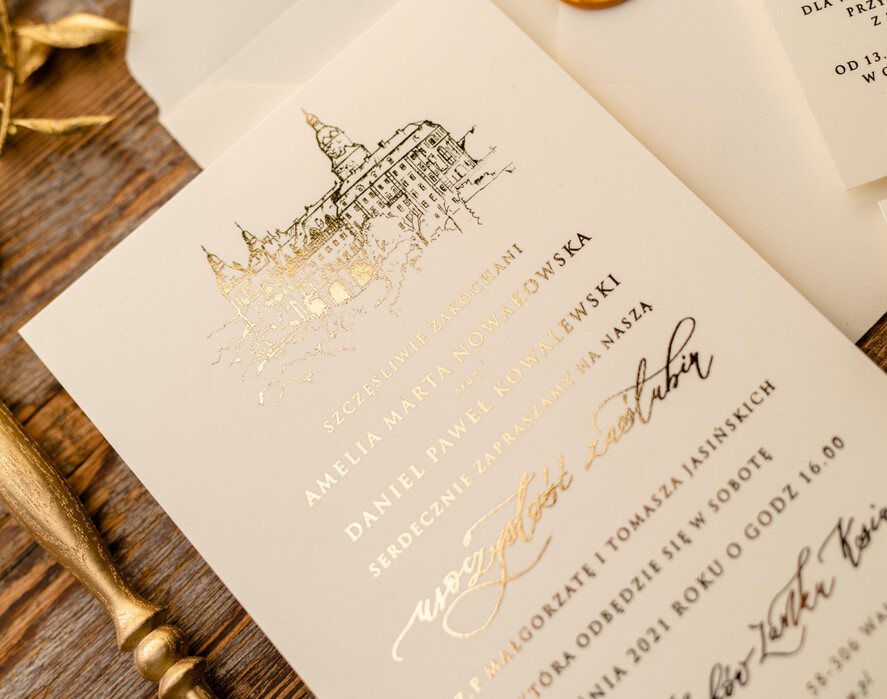 SZCZĘŚLIWIE ZAKOCHANI
AMELIA MARTA NOWAKOWSKA
oraz
DANIEL PAWEŁ KOWALEWSKI
SERDECZNIE ZAPRASZAMY NA NASZĄ
uroczystość zaślubin
Z.P MAŁGORZATĘ I TOMASZA JASIŃSKICH
KTÓRA ODBĘDZIE SIĘ W SOBOTĘ
2021 ROKU O GODZ 16.00
Zamku
58-306
DLA
Z
OD 13.